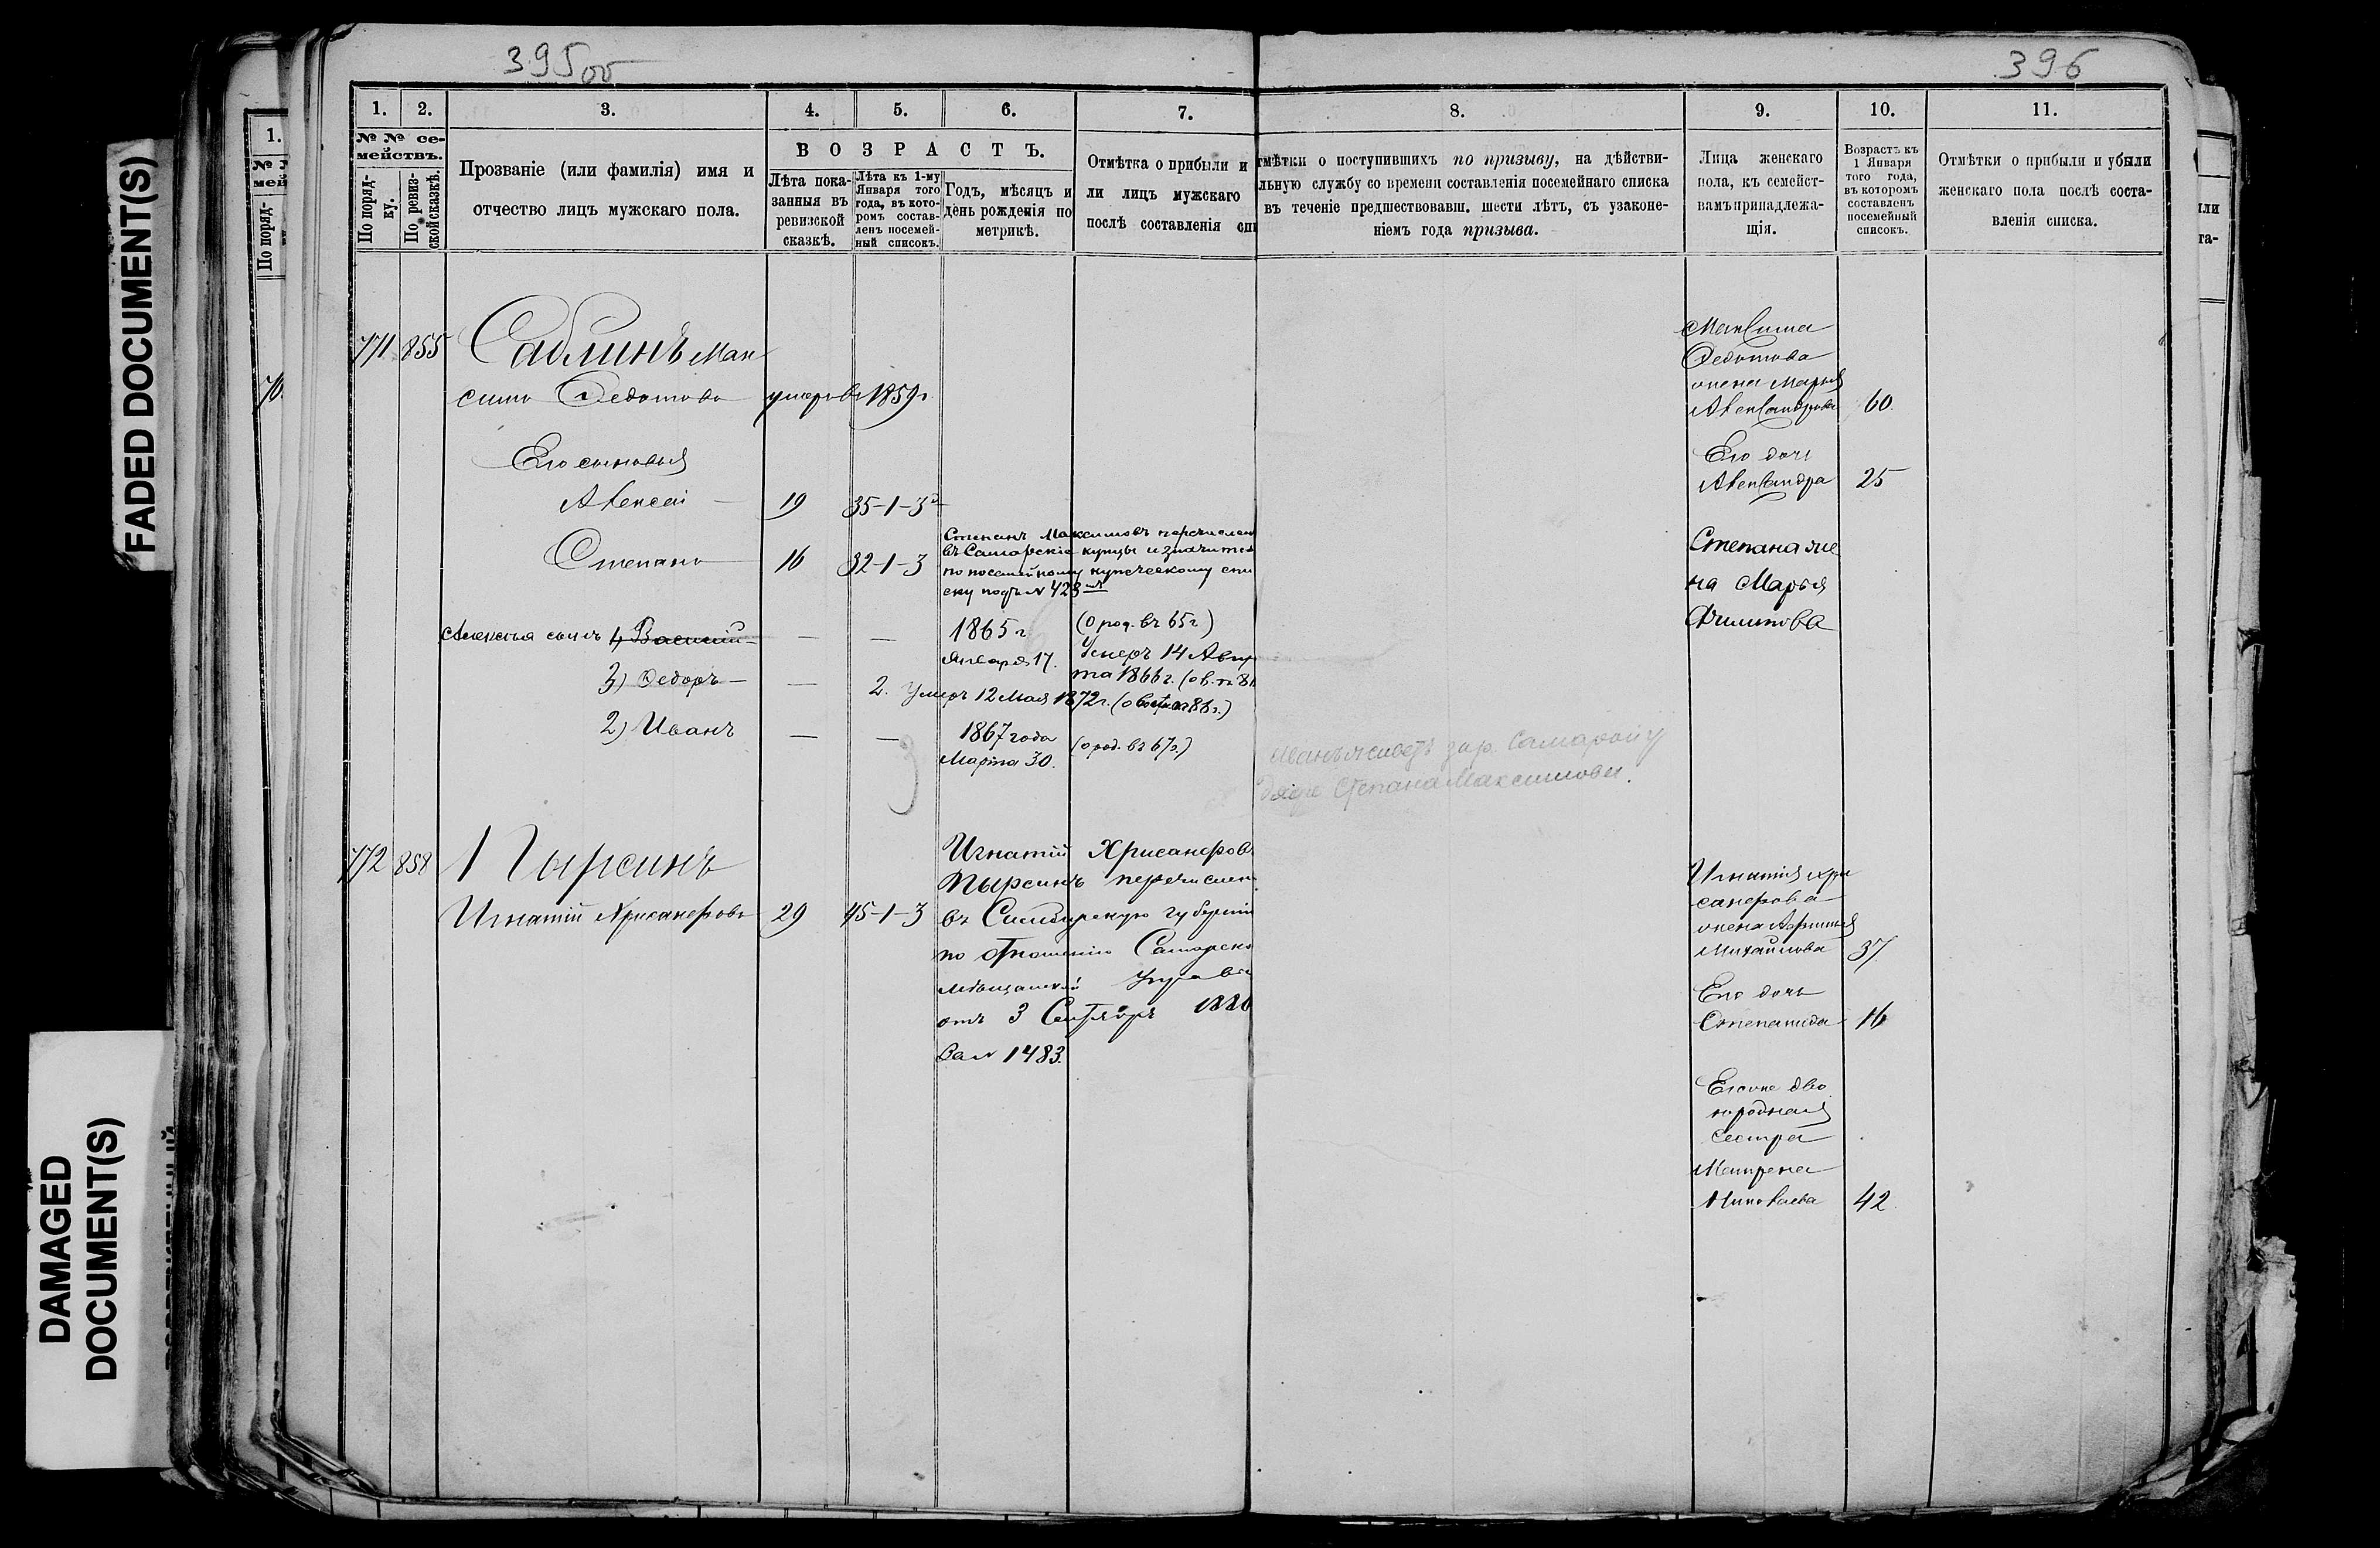 395об
396
FADED DOCUMENT(S)
DAMAGED DOCUMENT(S)
1. 2. 3. 4. 5. 6. 7. 8. 9. 10. 11.
№ № се-
мействъ.
По поряд-
ку.
По ревиз-
ской сказкѣ.
Прозваніе (или фамилія) имя и
отчество лицъ мужскаго пола.
ВОЗРАСТЪ.
Лѣта пока-
занныя въ
ревизской
сказкѣ.
Лѣта къ 1-му
Января того
года, въ кото-
ромъ состав-
ленъ посемей-
ный списокъ.
Годъ, мѣсяцъ и
день рожденія по
метрикѣ.
Отмѣтка о прибыли и
ли лицъ мужскаго
послѣ составленія спи
тмѣтки о поступившихъ по призыву, на дѣйстви-
льную службу со времени составленія посемейнаго списка
въ теченіе предшествовавш. шести лѣтъ, съ узаконе-
ніемъ года призыва.
Лица женскаго
пола, къ семейст-
вамъ принадлежа-
щія.
Возрастъ къ
1 Января
того года,
въ которомъ
составленъ
посемейный
списокъ.
Отмѣтки о прибыли и убыли
женскаго пола послѣ соста-
вленія списка.
771 855 Саблинъ Мак
симъ Федотовъ умеръ въ 1859 г.
Его сыновья
Алексѣй 19 35-1-3
Степанъ 16 32-1-3
Степанъ Максимовъ перечислен
въ Самарскіе купцы и значится
по посемейному купеческому спи
ску подъ № 423
Алексѣя сынъ 1) Василій — — 1865 г.
Января 17.
(о род. въ 65 г.)
Умеръ 14 Авгу
та 1866 г.
3) Федоръ — — 2. Умеръ 12 Мая 1872 г.
2) Иванъ — — 1867 года
Марта 30.
(о род. въ 67 г.)
Иванъ живетъ
дяди Степана Максимова.
Максима
Федотова
жена Марья
Александрова 60.
Его дочь
Александра 25
Степана же
на Марья
Филипова
772 858 Пырсинъ
Игнатій Хрисанфовъ 29 45-1-3
Игнатій Хрисанфовъ
Пырсинъ перечислен
въ Симбирскую губернію
по отношенію Самарско
мѣщанской Управы
отъ 3 Сентября 1880
За № 1483.
Игнатія Хри
санфова
жена
Михайлова 37.
Его дочь
Степанида 16
Его же дво
юродная
сестра
Матрена
Николаева 42.